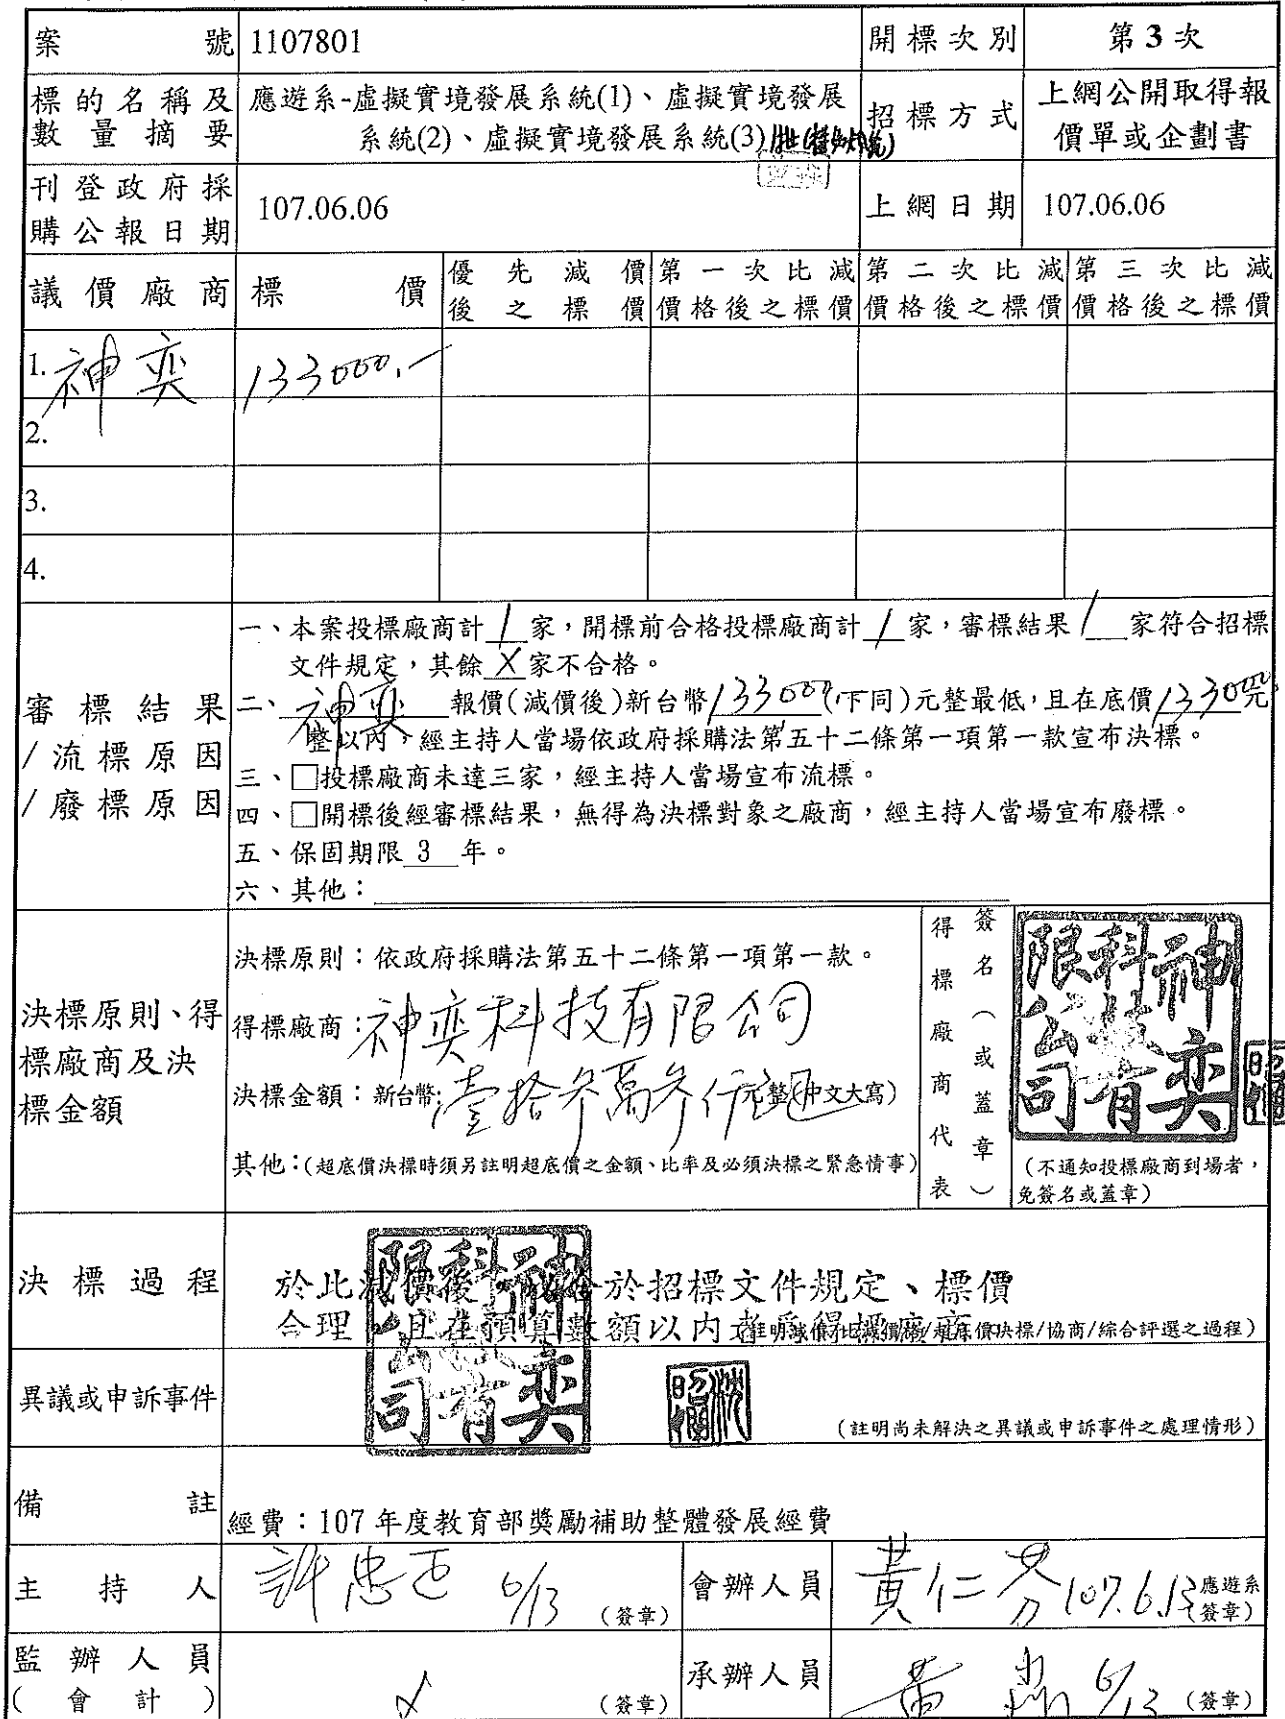 案號 1107801 開標次別 第3次
標的名稱及 應遊系-虛擬實境發展系統(1)、虛擬實境發展 招標方式 上網公開取得報
數量摘要 系統(2)、虛擬實境發展系統(3) 價單或企劃書
刊登政府採 107.06.06 上網日期 107.06.06
購公報日期
議價廠商 標價 優先減價 第一次比減 第二次比減 第三次比減
後之標價 價格後之標價 價格後之標價 價格後之標價
1. 神奕 133000.-
2.
3.
4.
審標結果
/流標原因
/廢標原因
一、本案投標廠商計 1 家,開標前合格投標廠商計 1 家,審標結果 1 家符合招標
文件規定,其餘 X 家不合格。
二、神奕 報價(減價後)新台幣133000(下同)元整最低,且在底價133000元
整以內,經主持人當場依政府採購法第五十二條第一項第一款宣布決標。
三、□投標廠商未達三家,經主持人當場宣布流標。
四、□開標後經審標結果,無得為決標對象之廠商,經主持人當場宣布廢標。
五、保固期限 3 年。
六、其他:
決標原則、得
標廠商及決
標金額
決標原則:依政府採購法第五十二條第一項第一款。
得標廠商:神奕科技有限公司
決標金額:新台幣:壹拾參萬參仟元整(中文大寫)
其他:(超底價決標時須另註明超底價之金額、比率及必須決標之緊急情事)
得標廠商代表
簽名(或蓋章)
神奕科技有限公司
(不通知投標廠商到場者,
免簽名或蓋章)
決標過程
於比減價後,符合於招標文件規定、標價
合理,且在預算數額以內者為得標廠商。
價決標/協商/綜合評選之過程)
神奕科技有限公司
異議或申訴事件
(註明尚未解決之異議或申訴事件之處理情形)
備註 經費:107年度教育部獎勵補助整體發展經費
主持人 許忠 6/13 (簽章) 會辦人員 黃仁芬 107.6.13 應遊系
(簽章)
監辦人員 (簽章) 承辦人員 黃 6/13 (簽章)
(會計)